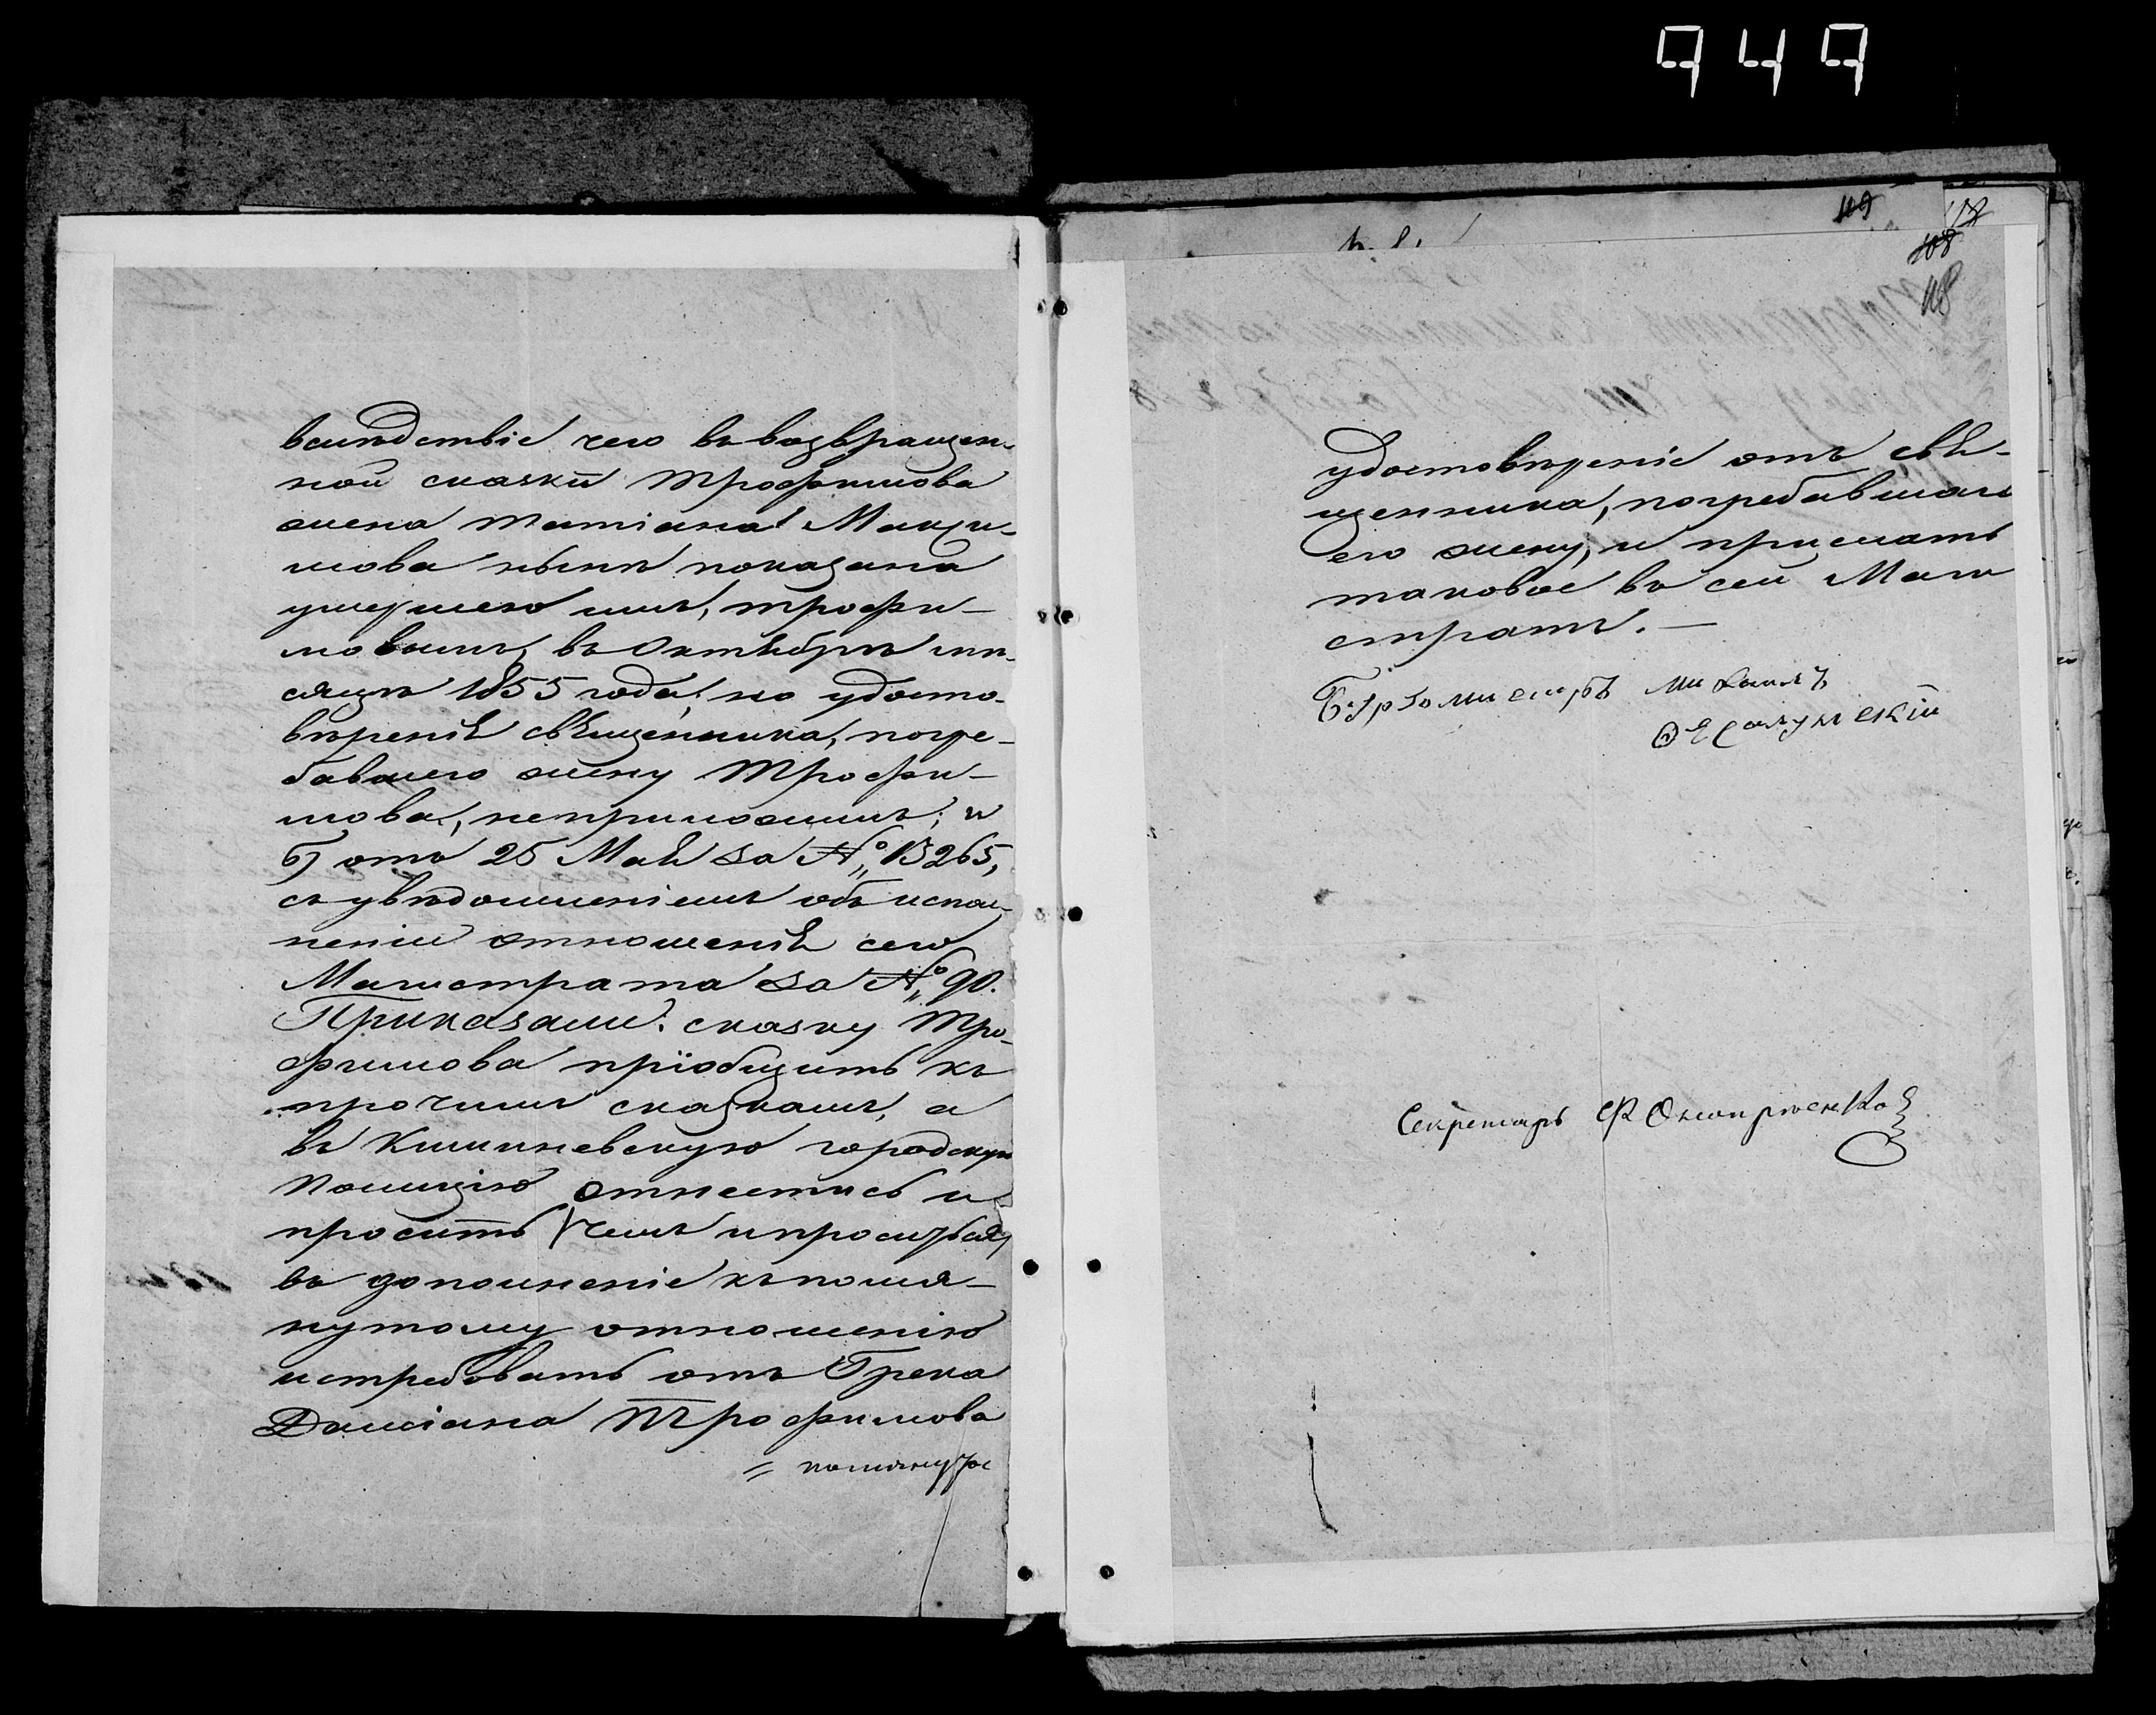 949
119
108
118
вслѣдствіе чего въ возвращен-
ной сказкѣ Трофимова
жена Татіана Макси-
мова нынѣ показана
умершею имъ, Трофи-
мовымъ, въ Октябрѣ мѣ-
сяцѣ 1855 года, но удосто-
вѣренія священника, погре-
бавшего жену Трофи-
мова, неприложилъ; и
б) отъ 25 Мая за № 13265,
съ увѣдомленіемъ объ испол-
неніи отношенія сего
Магистрата за № 90.
Приказали: сказку Тро-
фимова пріобщить къ
прочимъ сказкамъ, а
въ Кишиневскую городскую
Полицію отнестись и
просить
въ дополненіе къ помя-
нутому отношенію
истребовать отъ Грека
Даміана Трофимова
= помянутое
удостовѣреніе отъ свя-
щенника, погребавшаго
его жену, и прислать
таковое въ сей Маги
стратъ. —
Бургомистръ Михаилъ
Секретарь